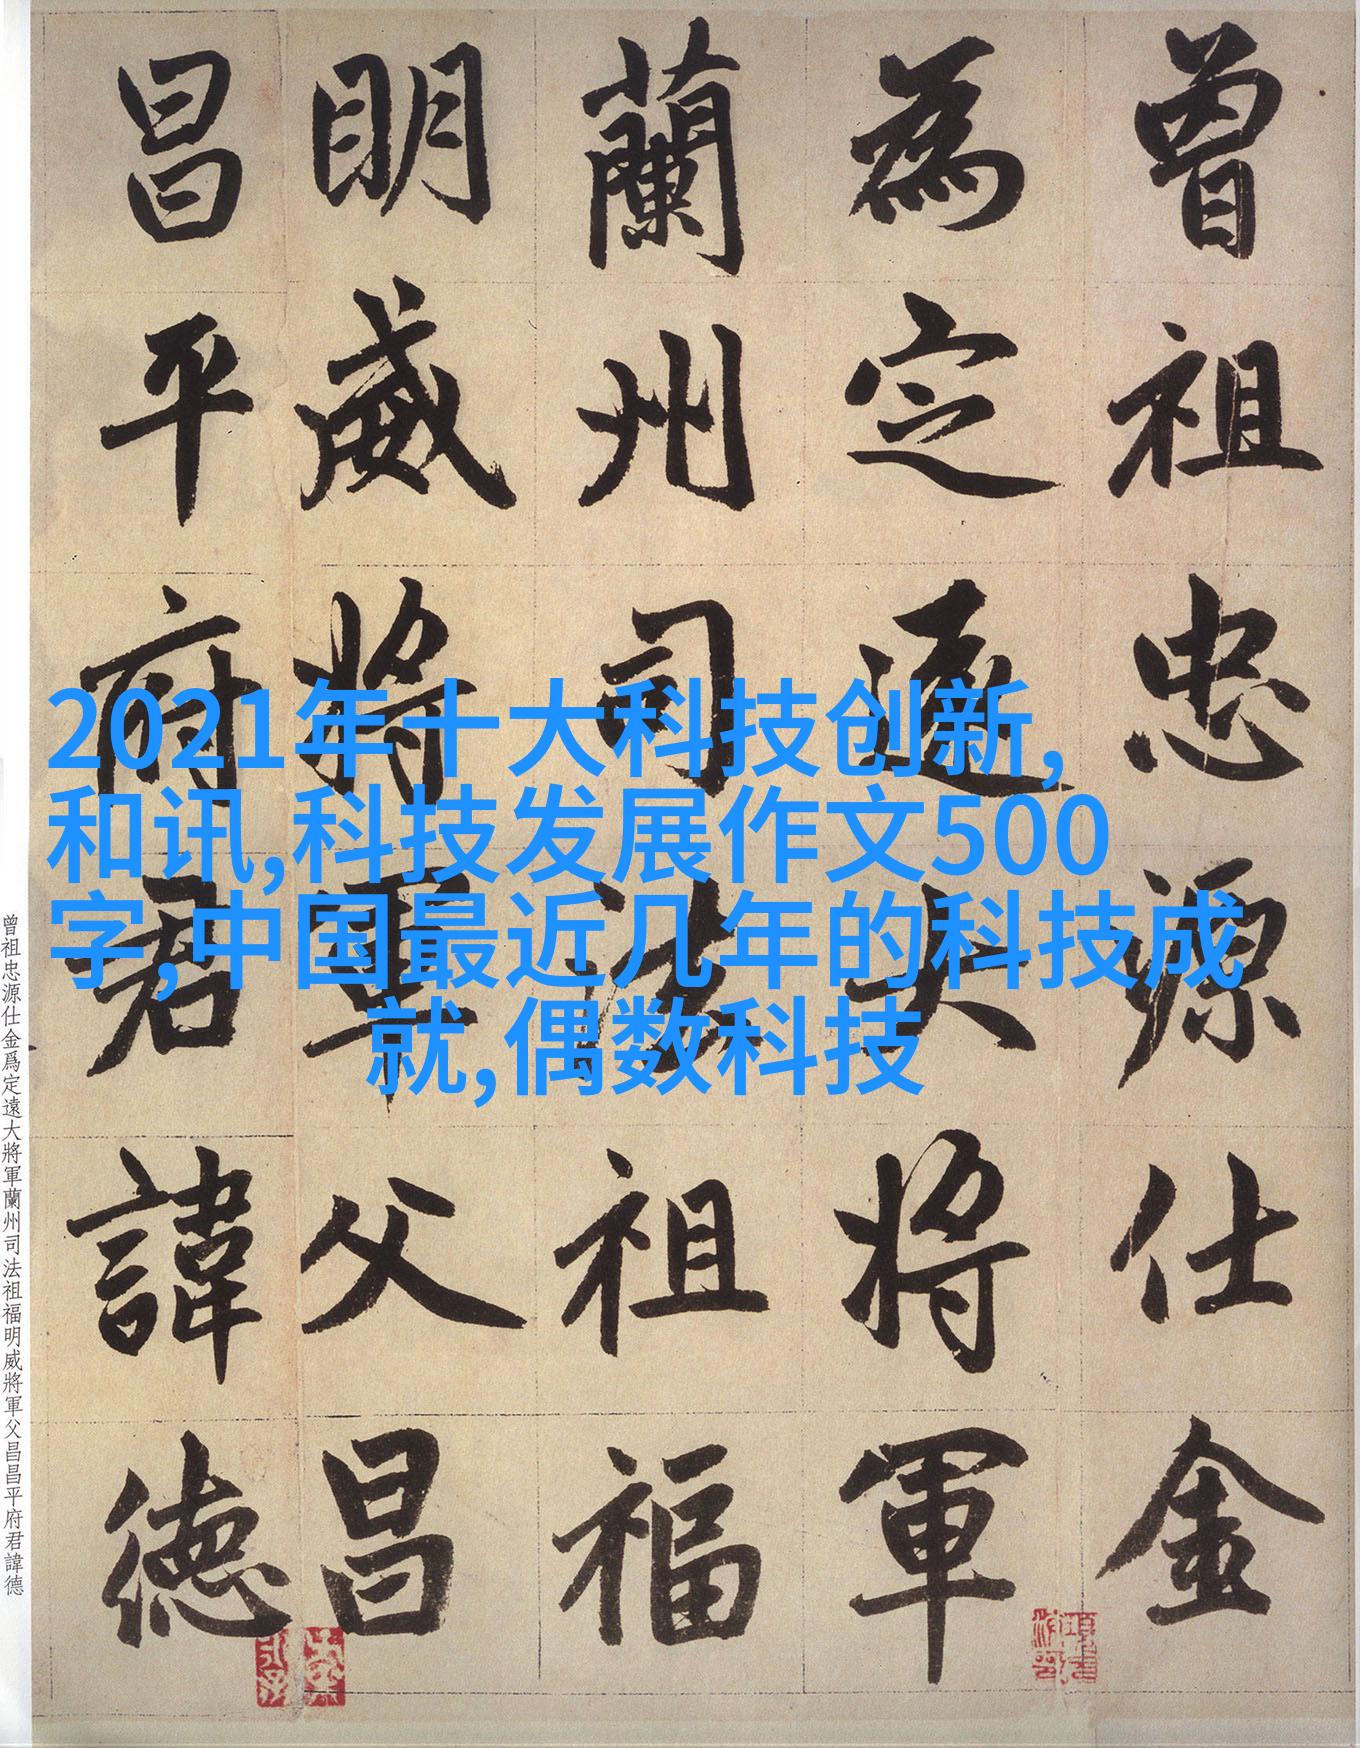 曾祖忠源仕金
為定遠大將軍
蘭州司法祖福
明威將軍父昌
昌平府君諱德
2021年十大科技创新,
和讯,科技发展作文500
字,中国最近几年的科技成
就,偶数科技
曾祖忠源仕金爲定遠大將軍蘭州司法祖福明威將軍父昌昌平府君諱德